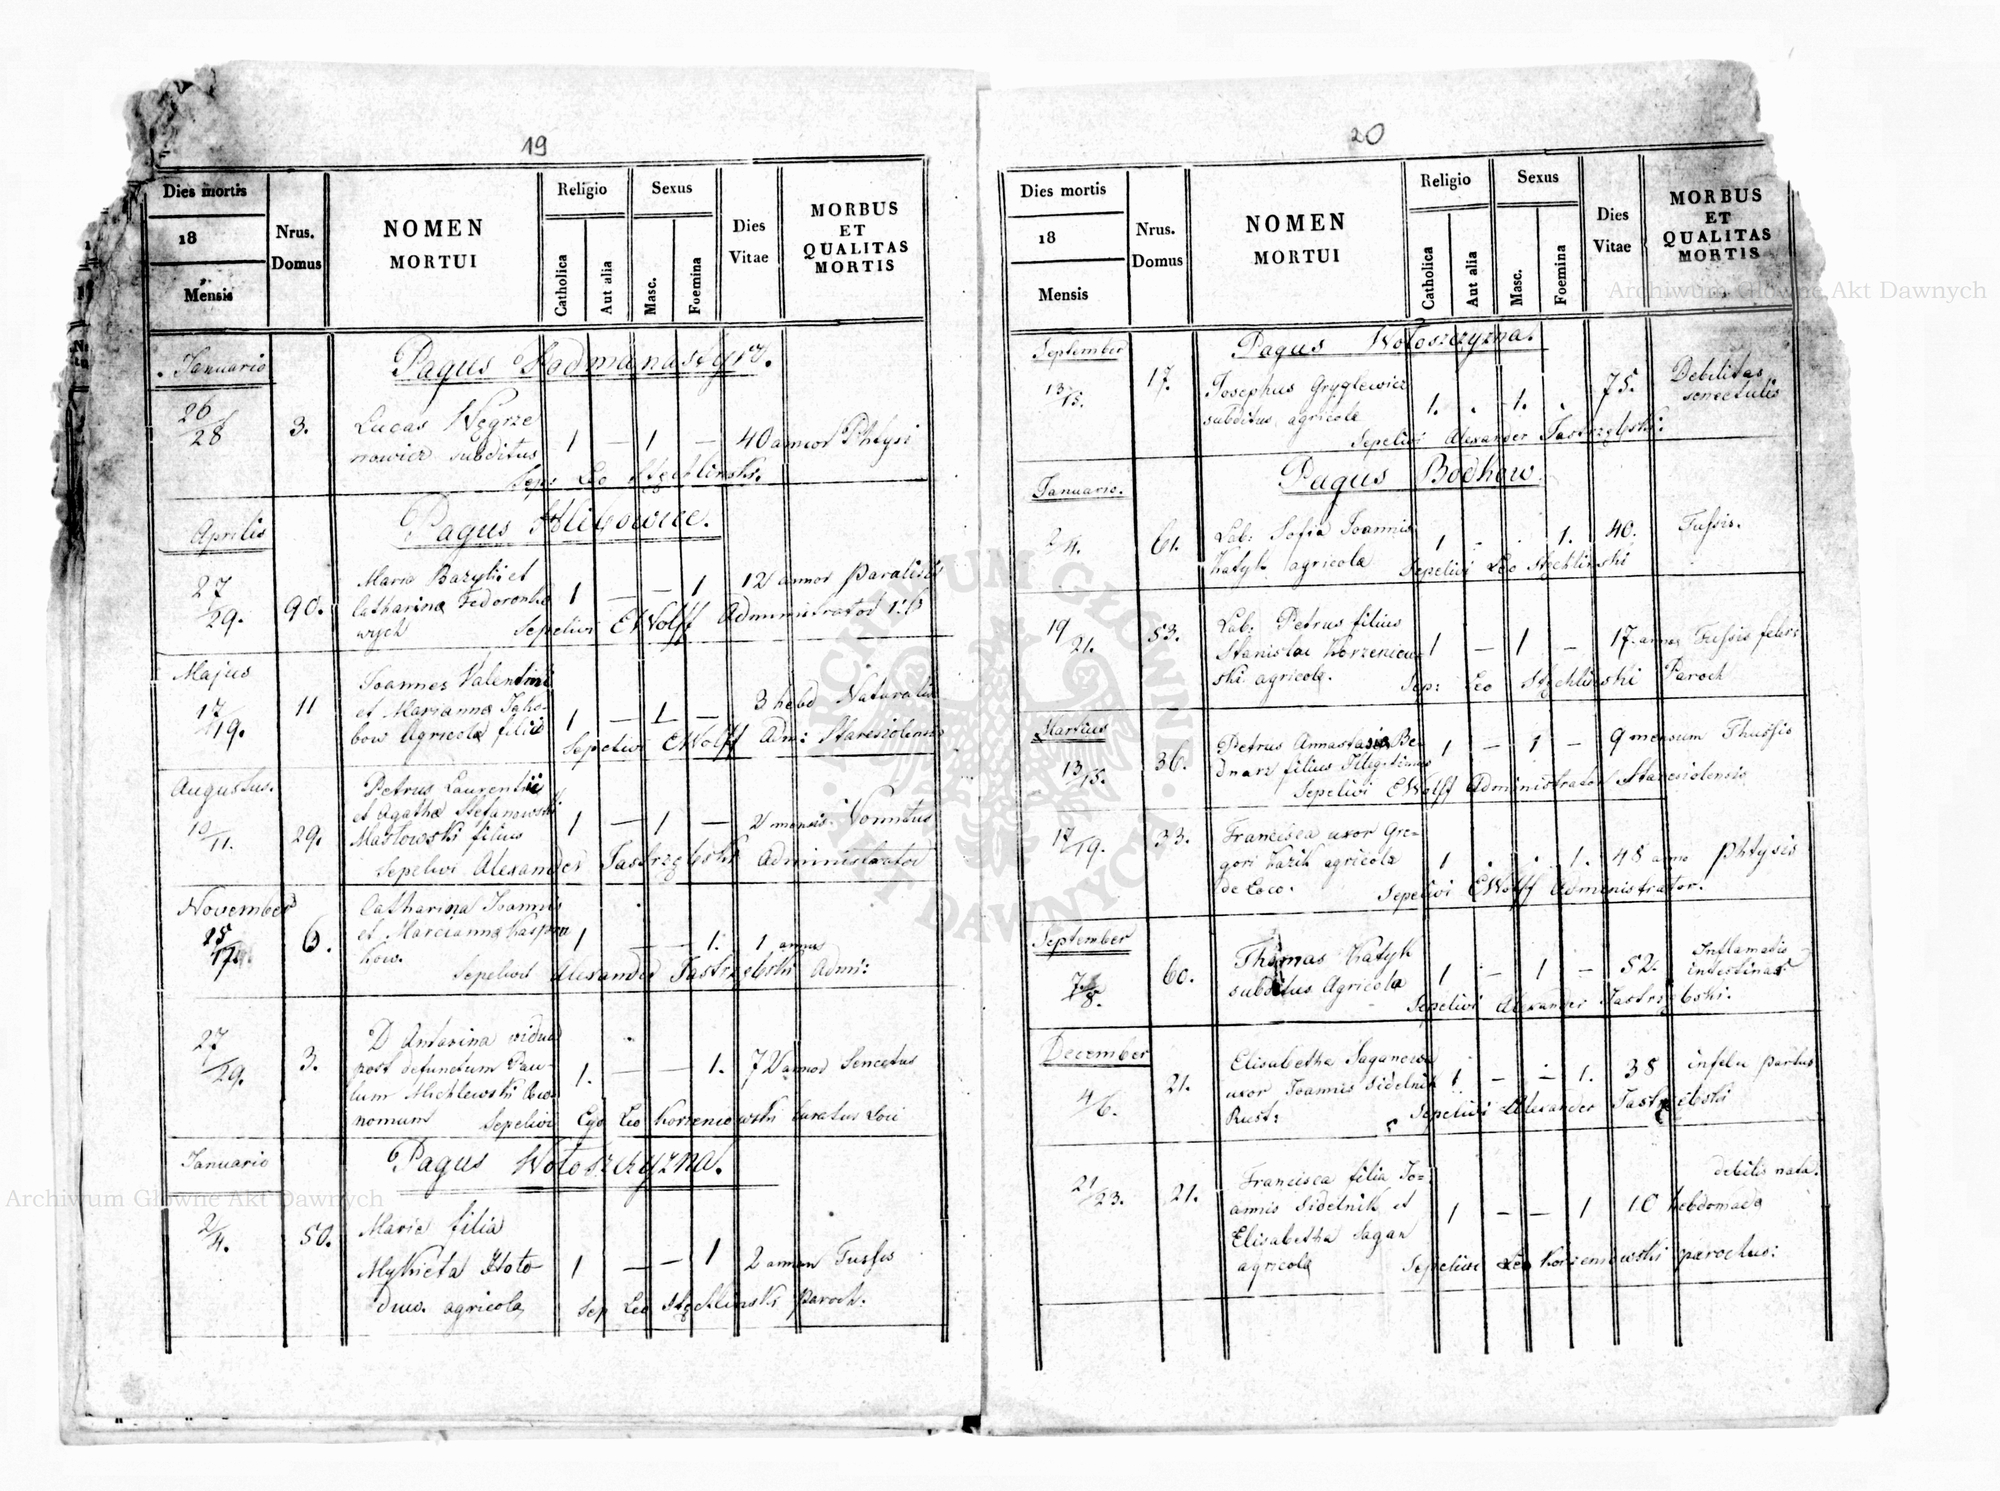 19
Dies mortis
18
Mensis
Nrus.
Domus
NOMEN
MORTUI
Religio
Catholica
Aut alia
Sexus
Masc.
Foemina
Dies
Vitae
MORBUS
ET
QUALITAS
MORTIS
Januario
Pagus Podmanastyrz.
26/28 3. Lucas Węgrze
nowicz subditus 1 — 1 — 40 annor Phtysi
Sep: Leo Stechlinski.
Aprilis
Pagus Hlibowice.
27/29. 90. Maria Bazyli et
Catharina Fedoronko 1 — — 1 12 annor Paralisis
wych Sepelivi EWolff Administrator
Majus
17/19. 11 Joannes Valentini
et Marianna Jako-
bow Agricola filius 1 — 1 — 3 hebd Naturalis
Sepelivi EWolff Adm: Staresiolensis
Augustus.
10/11. 29. Petrus Laurentii
et Agatha Stefanowski
Masłowski filius 1 — 1 — 2 mensis Vomitus
Sepelivi Alexander Jastrzębski Administrator
November
25 6. Catharina Joannis
et Marcianna Kaspro 1 — — 1. 1 annus
kow. Sepelivit Alexander Jastrzębski Adm:
27/29. 3. D Antonina vidua
post defunctum Pau-
lum Michlewski 1. — — 1. 72 annor Senectus
nomum Sepelivi Ego Leo Korzeniowski Curatus Loci
Januario
Pagus Wołoszczyzna.
2/4. 50. Maria filia
Mykieta Hoło 1 — — 1 2 annor Tussis
Duw. agricola, Sep Leo Stechlinski Paroch.
20
Dies mortis
18
Mensis
Nrus.
Domus
NOMEN
MORTUI
Religio
Catholica
Aut alia
Sexus
Masc.
Foemina
Dies
Vitae
MORBUS
ET
QUALITAS
MORTIS
September
Pagus Wołoszczyzna.
13/15. 17. Josephus Gryglewicz
subditus, agricola 1. . 1. . 75. Debilitas
senectutis
Sepelivi Alexander Jastrzębski.
Januario.
Pagus Bodkow
2/4. 61. Lab: Sofia Joannis
Katyk agricola 1 . . 1. 40. Tussis.
Sepelivi Leo Stechlinski
19/21. 53. Lab: Petrus filius
Stanislai Korzeniow- 1 — 1 — 17. annor Tussis febr:
ski agricola. Sep: Leo Stechlinski Paroch
Martius
13/15. 36. Petrus Annastasia Be-
dnarz filius 1 — 1 — 9 mensium Thussis
Sepelivi EWolff Administrator Staresiolensis
17/19. 33. Francisca uxor Gre-
gori Kazik agricola 1 . . 1. 48 anno Phtysis
de Loco. Sepelivi EWolff Administrator.
September
7/8. 60. Thomas Katyk
subditus Agricola 1 — 1 — 52. Inflamatio
intestinar
Sepelivi Alexander Jastrzębski.
December
4/6. 21. Elisabetha Saganowa
uxor Joannis Sidelnik 1 — — 1. 38 infelix partus
Rust: Sepelivi Alexander Jastrzębski
21/23. 21. Francisca filia Jo-
annis Sidelnik et 1 — — 1 10 hebdomada
debilis nata.
Elisabetha Sagan
agricola Sepelivi Leo Korzeniowski parochus:
Archiwum Główne Akt Dawnych
Archiwum Główne Akt Dawnych
ARCHIWUM GŁÓWNE AKT DAWNYCH